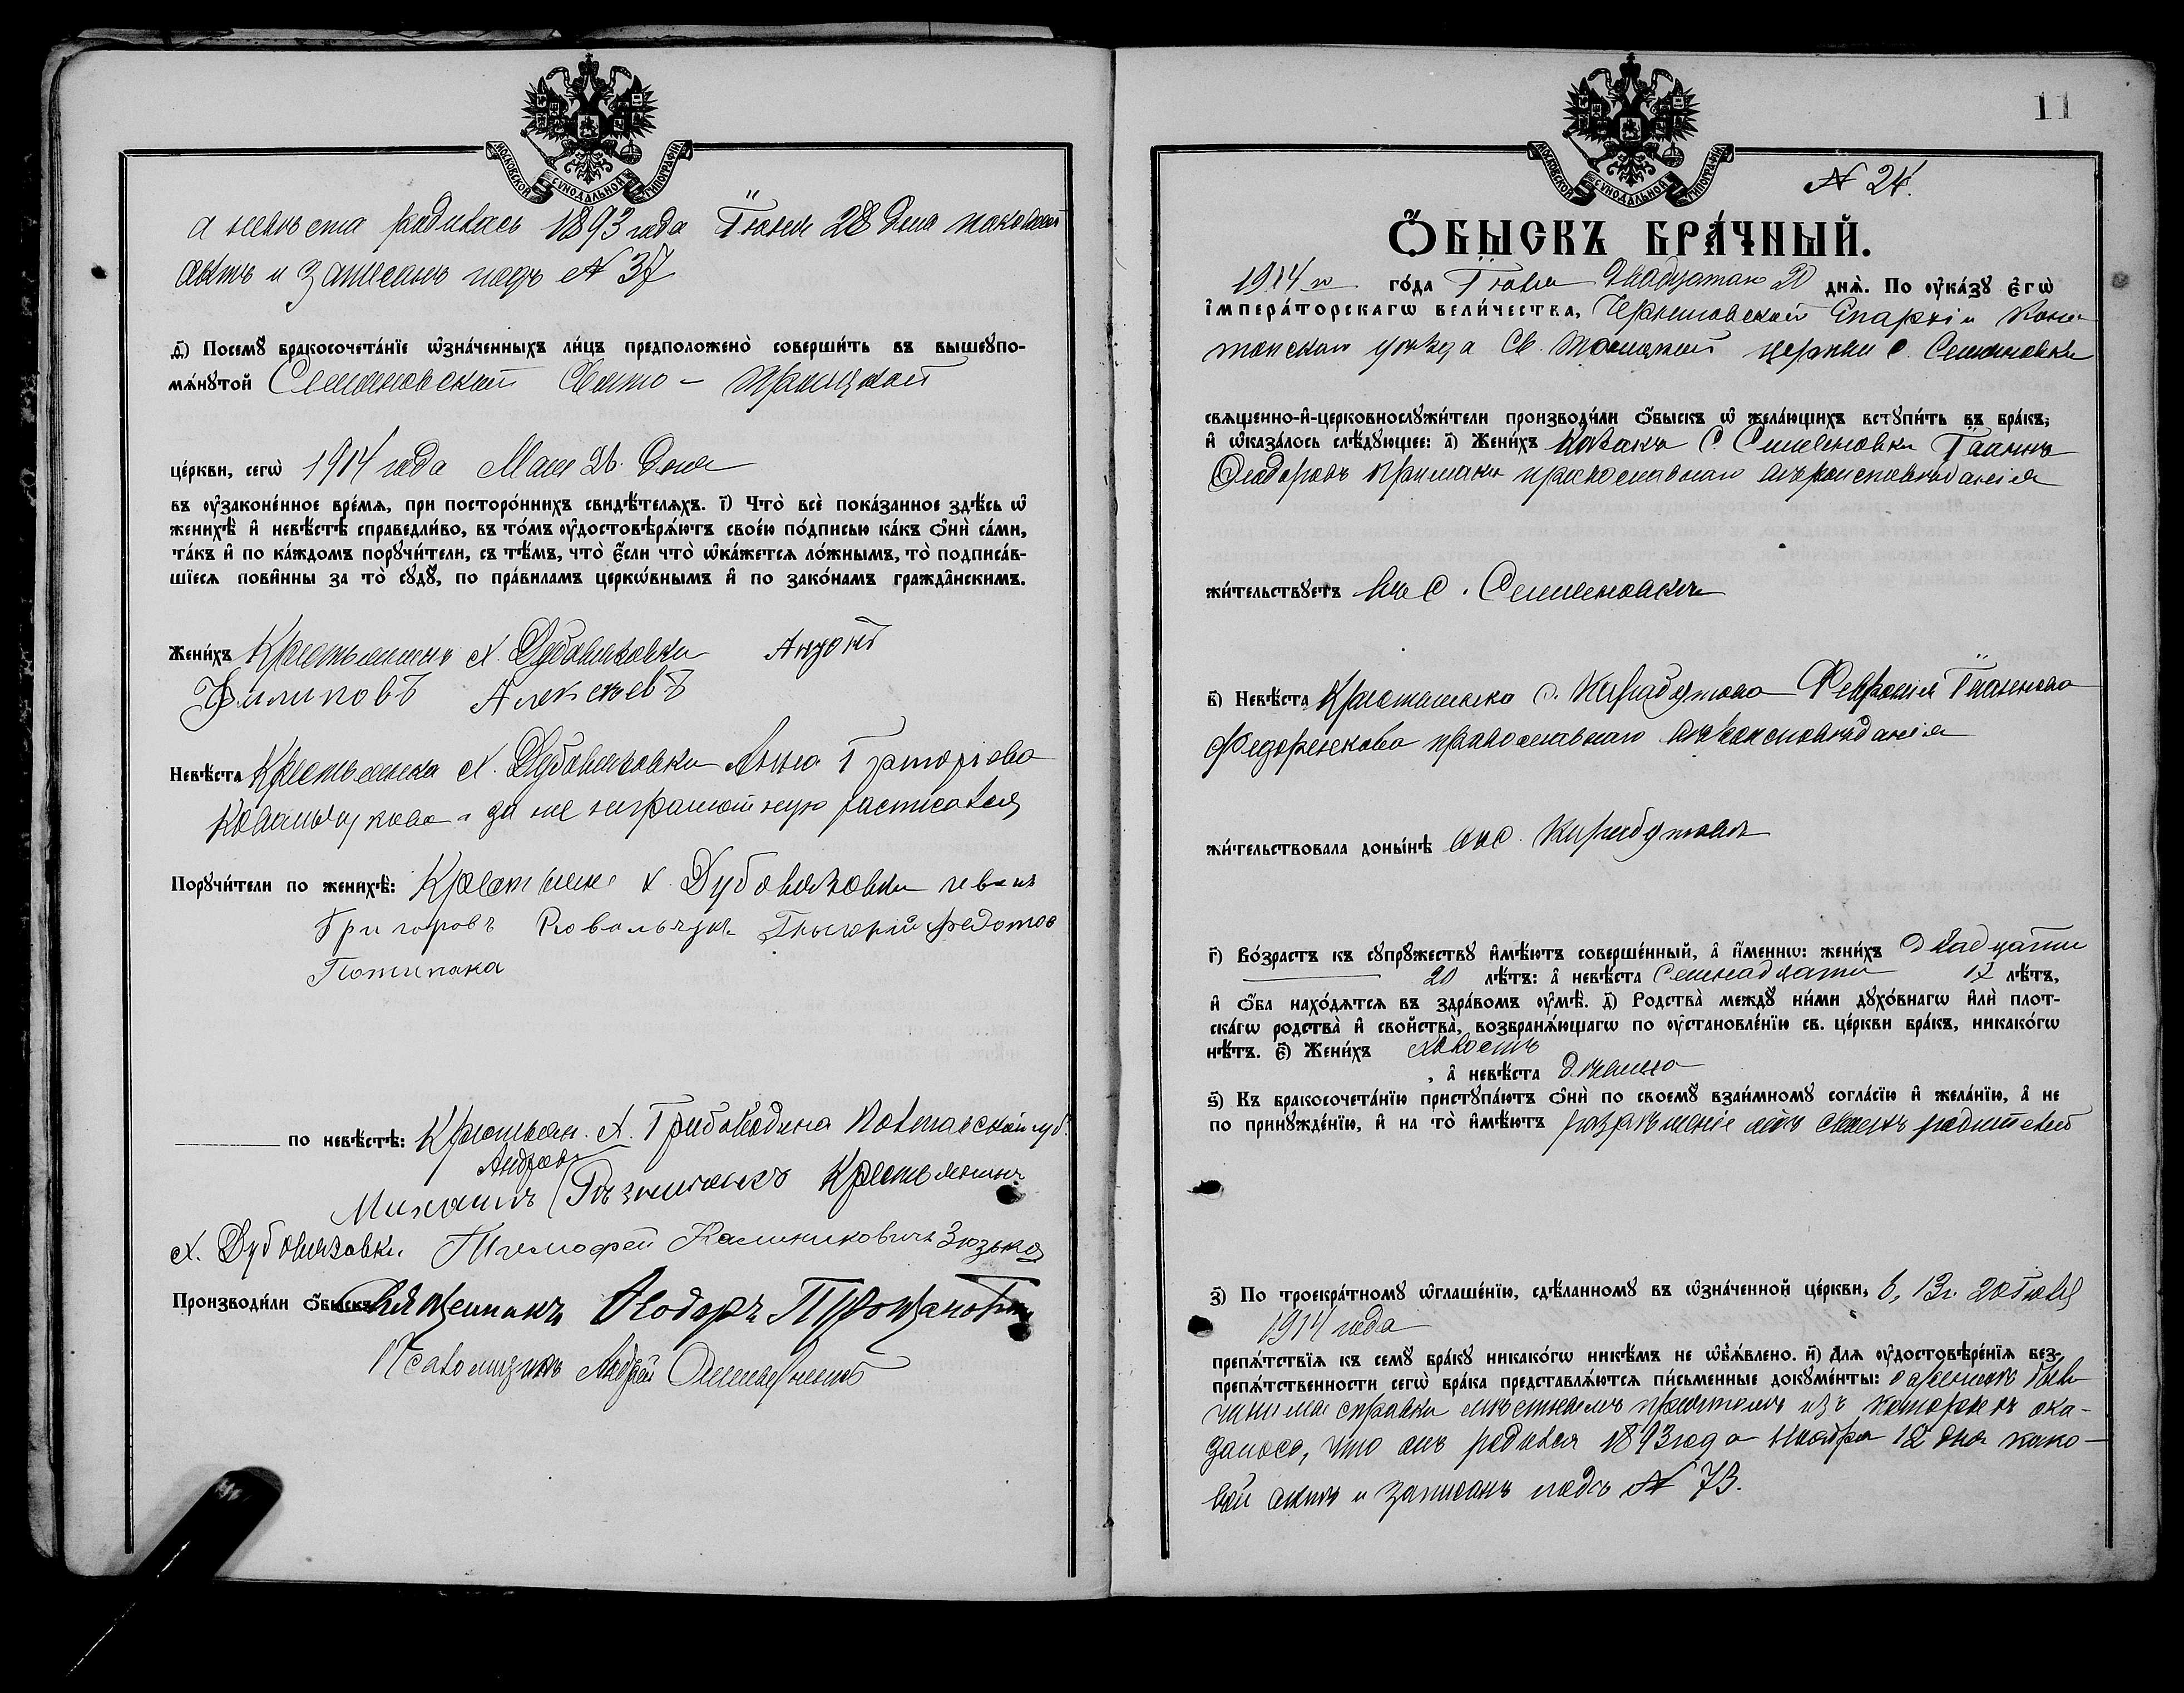 МОСКОВСКОЙ СУНОДАЛЬНОЙ ТИПОГРАФІИ
а невѣста родилась 1893 года Іюня 28 дня каковой
актъ и записанъ подъ № 37
д҃) Посемꙋ бракосочета́нїе ѡ҆зна́ченныхъ ли́цъ предположено̀ соверши́ть въ вышеꙋпо-
мѧ́нꙋтой Семяновской Свято-Троицкой
це́ркви, сегѡ̀ 1914 года Мая 26 дня
въ ᲂу҆законе́нное вре́мѧ, при посторо́ннихъ свидѣ́телѧхъ. і҃) Что̀ всѐ пока́занное здѣ́сь ѡ҆
женихѣ̀ и҆ невѣ́стѣ справедли́во, въ то́мъ ᲂу҆достовѣрѧ́ютъ свое́ю по́дписью ка́къ ѻ҆нѝ са́ми,
та́къ и҆ по ка́ждомъ порꙋчи́тели, съ тѣ́мъ, что̀ є҆́сли что̀ ѡ҆ка́жетсѧ ло́жнымъ, то̀ подписа́в-
шїесѧ пови́нны за то̀ сꙋдꙋ̀, по пра́виламъ церкѡ́внымъ и҆ по зако́намъ гражда̂нскимъ.
Жени́хъ Крестьянинъ х. Дубовязовки Андрей
Филиповъ Алексѣевъ
Невѣ́ста Крестьянка х. Дубовязовки Анна Григоріева
Ковальчукова а за неграмотную расписался
Порꙋчи́тели по женихѣ̀: Крестьяне х. Дубовязовки
Григоровъ Ковальчукъ Григорій Федотов
Потипака
по невѣ́стѣ: Крестьян. х. Грибоводина Полтавской губ.
Михаилъ Андреев Рѣзниченко Крестьянинъ
х. Дубовязовки Тимофей Калиниковичъ Зюзько
Производи́ли ѻ҆́быскъ: Священникъ Ѳеодоръ
Псаломщикъ Андрей
11
МОСКОВСКОЙ СУНОДАЛЬНОЙ ТИПОГРАФІИ
№ 24.
Ѻ҆́БЫСКЪ БРА́ЧНЫЙ.
1914 го́да Іюля двадцатаго 20 днѧ̀. По ᲂу҆ка́зꙋ є҆гѡ̀
і҆мпера́торскагѡ вели́чества, Черниговской Епархіи Коно-
топскаго уѣзда Св. Троицкой церкви с. Семяновки
свѧщенно-и҆-церковнослꙋжи́тели производи́ли ѻ҆́быскъ ѡ҆ жела́ющихъ встꙋпи́ть въ бра́къ,
и҆ ѡ҆каза́лось слѣ́дꙋющее: а҃) Жени́хъ козакъ с. Семеновки Іоаннъ
Ѳеодоровъ Примакъ православнаго вѣроисповѣданія
жи́тельствꙋетъ въ с. Семеновкѣ
в҃) Невѣ́ста Крестьянка с. Карабутова Февронія Іоаннова
Федоренкова православнаго вѣроисповѣданія
жи́тельствовала доны́нѣ въ с. Карабутовѣ
г҃) Во́зрастъ къ сꙋпрꙋ́жествꙋ и҆мѣ́ютъ соверше́нный, а҆ и҆́менно: жени́хъ двадцати
20 лѣ́тъ: а҆ невѣ́ста Семнадцати 17 лѣ́тъ,
и҆ ѻ҆́ба нахо́дѧтсѧ въ здра́вомъ ᲂу҆мѣ̀. д҃) Родства̀ междꙋ̀ ни́ми дꙋхо́внагѡ и҆лѝ плот-
ска́гѡ родства̀ и҆ свойства̀, возбранѧ́ющагѡ по ᲂу҆становле́нїю св. це́ркви бра́къ, никако́гѡ
нѣ́тъ. є҃) Жени́хъ холостъ
, а҆ невѣ́ста дѣвица
ѕ҃) Къ бракосочета́нїю пристꙋпа́ютъ ѻ҆нѝ по своемꙋ̀ взаи́мномꙋ согла́сїю и҆ жела́нїю, а҆ не
по принꙋжде́нїю, и҆ на то̀ и҆мѣ́ютъ разрѣшеніе отъ своихъ родителей
з҃) По троекра́тномꙋ ѡ҆глаше́нїю, сдѣ́ланномꙋ въ ѡ҆зна́ченной це́ркви, 6, 13 и 20 Іюля
1914 года
препѧ́тствїѧ къ семꙋ̀ бра́кꙋ никако́гѡ никѣ́мъ не ѡ҆б̾ѧ́влено. и҃) Длѧ ᲂу҆достовѣре́нїѧ без-
препѧ́тственности сегѡ̀ бра́ка представлѧ́ютсѧ пи́сьменные докꙋме́нты: о женихѣ были
справки мѣстнымъ причтомъ изъ которыхъ ока-
залось, что онъ родился 1893 года Ноября 12 дня како-
вой актъ и записанъ подъ № 73.